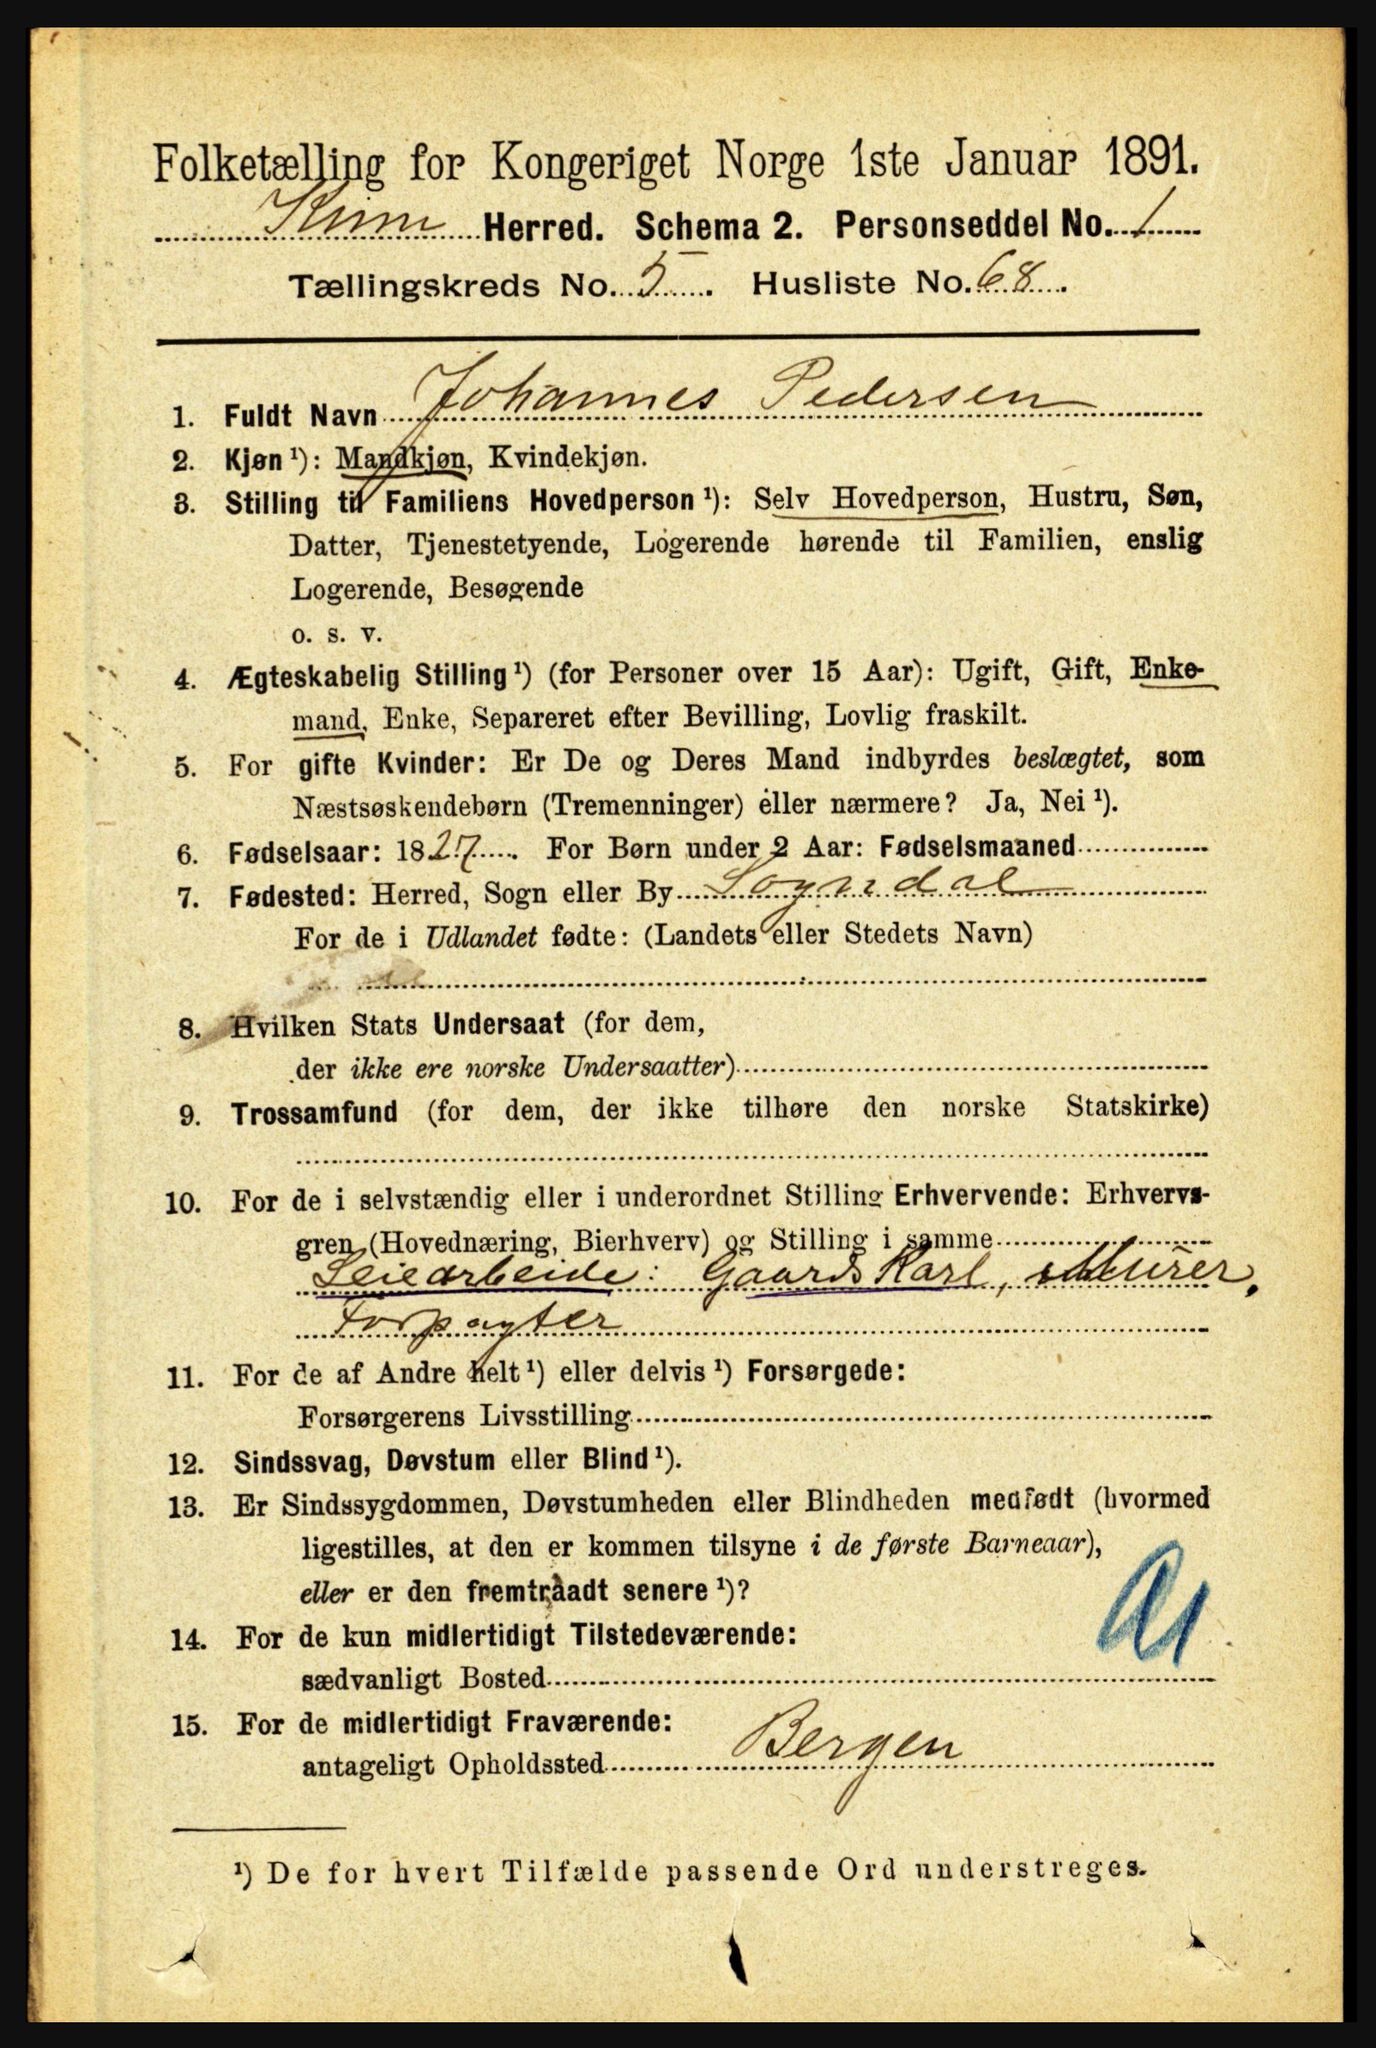 Folketælling for Kongeriget Norge 1ste Januar 1891.
Kinn Herred. Schema 2. Personseddel No. 1
Tællingskreds No. 5. Husliste No. 68.
1. Fuldt Navn Johannes Pedersen
2. Kjøn¹): Mandkjøn, Kvindekjøn.
3. Stilling til Familiens Hovedperson¹): Selv Hovedperson, Hustru, Søn,
Datter, Tjenestetyende, Logerende hørende til Familien, enslig
Logerende, Besøgende
o. s. v.
4. Ægteskabelig Stilling¹) (for Personer over 15 Aar): Ugift, Gift, Enke-
mand, Enke, Separeret efter Bevilling, Lovlig fraskilt.
5. For gifte Kvinder: Er De og Deres Mand indbyrdes beslægtet, som
Næstsøskendebørn (Tremenninger) eller nærmere? Ja, Nei¹).
6. Fødselsaar: 1827. For Børn under 2 Aar: Fødselsmaaned
7. Fødested: Herred, Sogn eller By Sogndal
For de i Udlandet fødte: (Landets eller Stedets Navn)
8. Hvilken Stats Undersaat (for dem,
der ikke ere norske Undersaatter)
9. Trossamfund (for dem, der ikke tilhøre den norske Statskirke)
10. For de i selvstændig eller i underordnet Stilling Erhvervende: Erhvervs-
gren (Hovednæring, Bierhverv) og Stilling i samme
Leiearbeide: Gaards Karl, Murer,
Forpagter
11. For de af Andre helt¹) eller delvis¹) Forsørgede:
Forsørgerens Livsstilling
12. Sindssvag, Døvstum eller Blind¹).
13. Er Sindssygdommen, Døvstumheden eller Blindheden medfødt (hvormed
ligestilles, at den er kommen tilsyne i de første Barneaar),
eller er den fremtraadt senere¹)?
14. For de kun midlertidigt Tilstedeværende:
sædvanligt Bosted
15. For de midlertidigt Fraværende:
antageligt Opholdssted Bergen
¹) De for hvert Tilfælde passende Ord understreges.